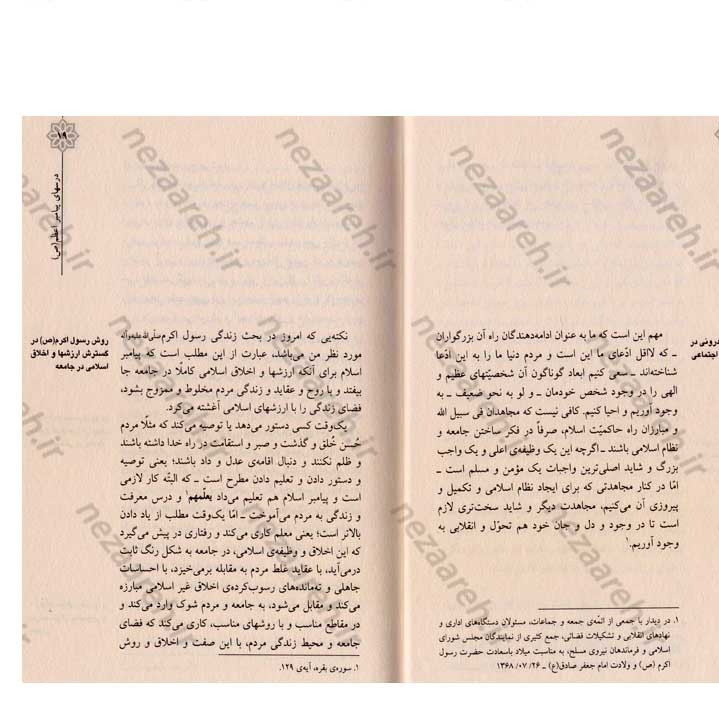 درونی در
اجتماعی
مهم این است که ما به عنوان ادامه‌دهندگان راه آن بزرگواران
ـ که لااقل ادّعای ما این است و مردم دنیا ما را به این ادّعا
شناخته‌اند ـ سعی کنیم ابعاد گوناگون آن شخصیّتهای عظیم و
الهی را در وجود شخص خودمان ـ و لو به نحو ضعیف ـ به
وجود آوریم و احیا کنیم. کافی نیست که مجاهدان فی سبیل الله
و مبارزان راه حاکمیّت اسلام، صرفاً در فکر ساختن جامعه و
نظام اسلامی باشند ـ اگرچه این یک وظیفه‌ی اعلی و یک واجب
بزرگ و شاید اصلی‌ترین واجبات یک مؤمن و مسلم است ـ
امّا در کنار مجاهدتی که برای ایجاد نظام اسلامی و تکمیل و
پیروزی آن می‌کنیم، مجاهدت دیگر و شاید سخت‌تری لازم
است تا در وجود و دل و جان خود هم تحوّل و انقلابی به
وجود آوریم.۱
۱. در دیدار با جمعی از ائمّه‌ی جمعه و جماعات، مسئولان دستگاه‌های اداری و
نهادهای انقلابی و تشکیلات قضائی، جمع کثیری از نمایندگان مجلس شورای
اسلامی و فرماندهان نیروی مسلح، به مناسبت میلاد باسعادت حضرت رسول
اکرم (ص) و ولادت امام جعفر صادق(ع) ـ ۱۳۶۸/۰۷/۲۶
۱۹
درسهای پیامبر اعظم(ص)
روش رسول اکرم(ص) در
گسترش ارزشها و اخلاق
اسلامی در جامعه
نکته‌یی که امروز در بحث زندگی رسول اکرم‌صلّی‌الله‌علیه‌وآله
مورد نظر من می‌باشد، عبارت از این مطلب است که پیامبر
اسلام برای آنکه ارزشها و اخلاق اسلامی کاملاً در جامعه جا
بیفتد و با روح و عقاید و زندگی مردم مخلوط و ممزوج بشود،
فضای زندگی را با ارزشهای اسلامی آغشته می‌کرد.
یک‌وقت کسی دستور می‌دهد یا توصیه می‌کند که مثلاً مردم
حُسن خُلق و گذشت و صبر و استقامت در راه خدا داشته باشند
و ظلم نکنند و دنبال اقامه‌ی عدل و داد باشند؛ یعنی توصیه
و دستور دادن و تعلیم دادن مطرح است ـ که البتّه کار لازمی
است و پیامبر اسلام هم تعلیم می‌داد یعلّمهم۱ و درس معرفت
و زندگی به مردم می‌آموخت ـ امّا یک‌وقت مطلب از یاد دادن
بالاتر است؛ یعنی معلم کاری می‌کند و رفتاری در پیش می‌گیرد
که این اخلاق و وظیفه‌ی اسلامی، در جامعه به شکل رنگ ثابت
درمی‌آید، با عقاید غلط مردم به مقابله برمی‌خیزد، با احساسات
جاهلی و ته‌مانده‌های رسوب‌کرده‌ی اخلاق غیر اسلامی مبارزه
می‌کند و مقابل می‌شود، به جامعه و مردم شوک وارد می‌کند و
در مقاطع مناسب و با روشهای مناسب، کاری می‌کند که فضای
جامعه و محیط زندگی مردم، با این صفت و اخلاق و روش
۱. سوره‌ی بقره، آیه‌ی ۱۲۹.
nezaareh.ir
nezaareh.ir
nezaareh.ir
nezaareh.ir
nezaareh.ir
nezaareh.ir
nezaareh.ir